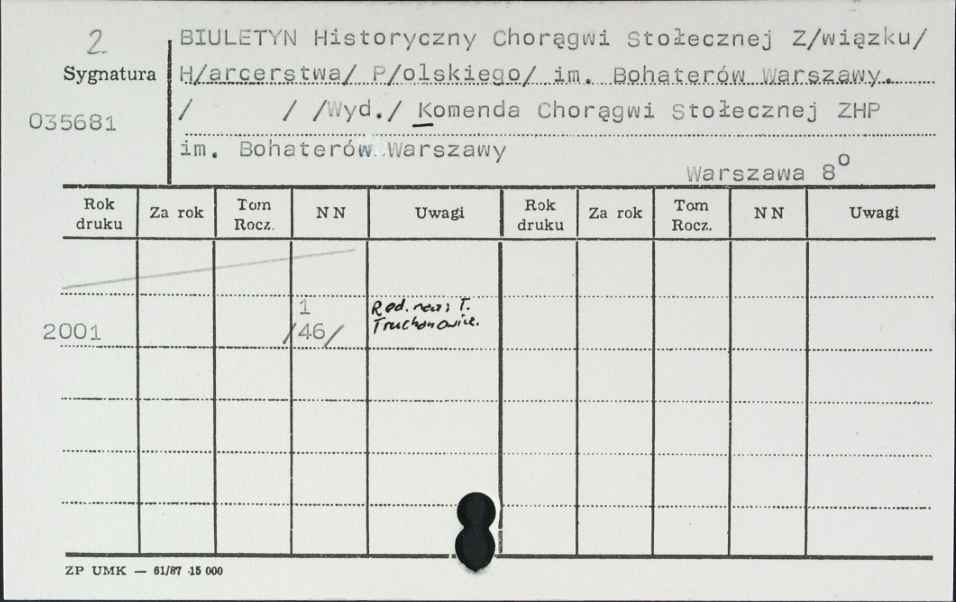 2
BIULETYN Historyczny Chorągwi Stołecznej Z/wiązku/
Sygnatura
H/arcerstwa/ P/olskiego/ im. Bohaterów Warszawy.
035681
/ / /Wyd./ Komenda Chorągwi Stołecznej ZHP
im. Bohaterów Warszawy
Warszawa 8º
Rok druku Za rok Tom Rocz. NN Uwagi Rok druku Za rok Tom Rocz. NN Uwagi
1 Red. nacz. T.
2001 /46/ Truchanowicz.
ZP UMK — 61/87 15 000